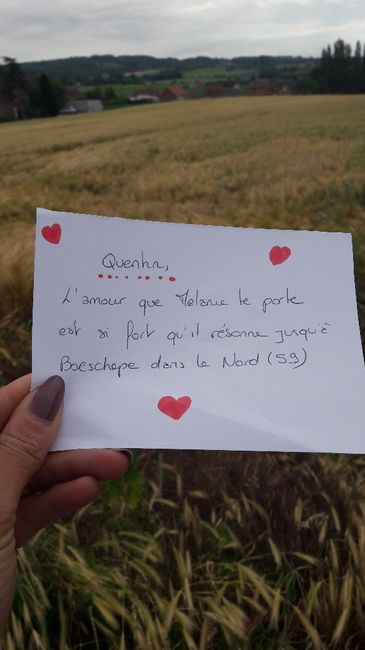 Quentin,
L'amour que Mélanie te porte
est si fort qu'il résonne jusqu'à
Boeschepe dans le Nord (59)